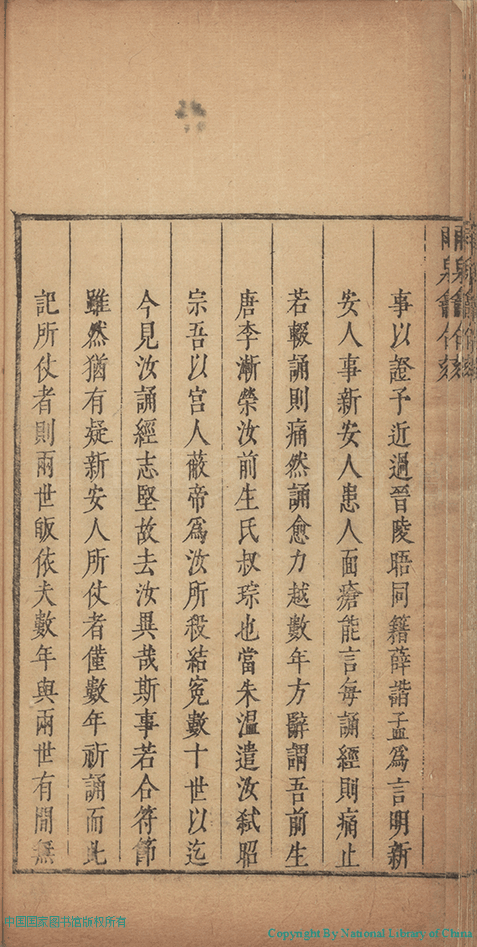 事以證予近過晉陵晤同籍薛諧孟爲言明新
安人事新安人患人面瘡能言每誦經則痛止
若輟誦則痛然誦愈力越數年方辭謂吾前生
唐李漸榮汝前生氏叔琮也當朱溫遣汝弒昭
宗吾以宫人蔽帝爲汝所殺結寃數十世以迄
今見汝誦經志堅故去汝異哉斯事若合符節
雖然猶有疑新安人所仗者僅數年祈誦而此
記所仗者則兩世皈依夫數年與兩世有間無
中国国家图书馆版权所有
Copyright By National Library of China